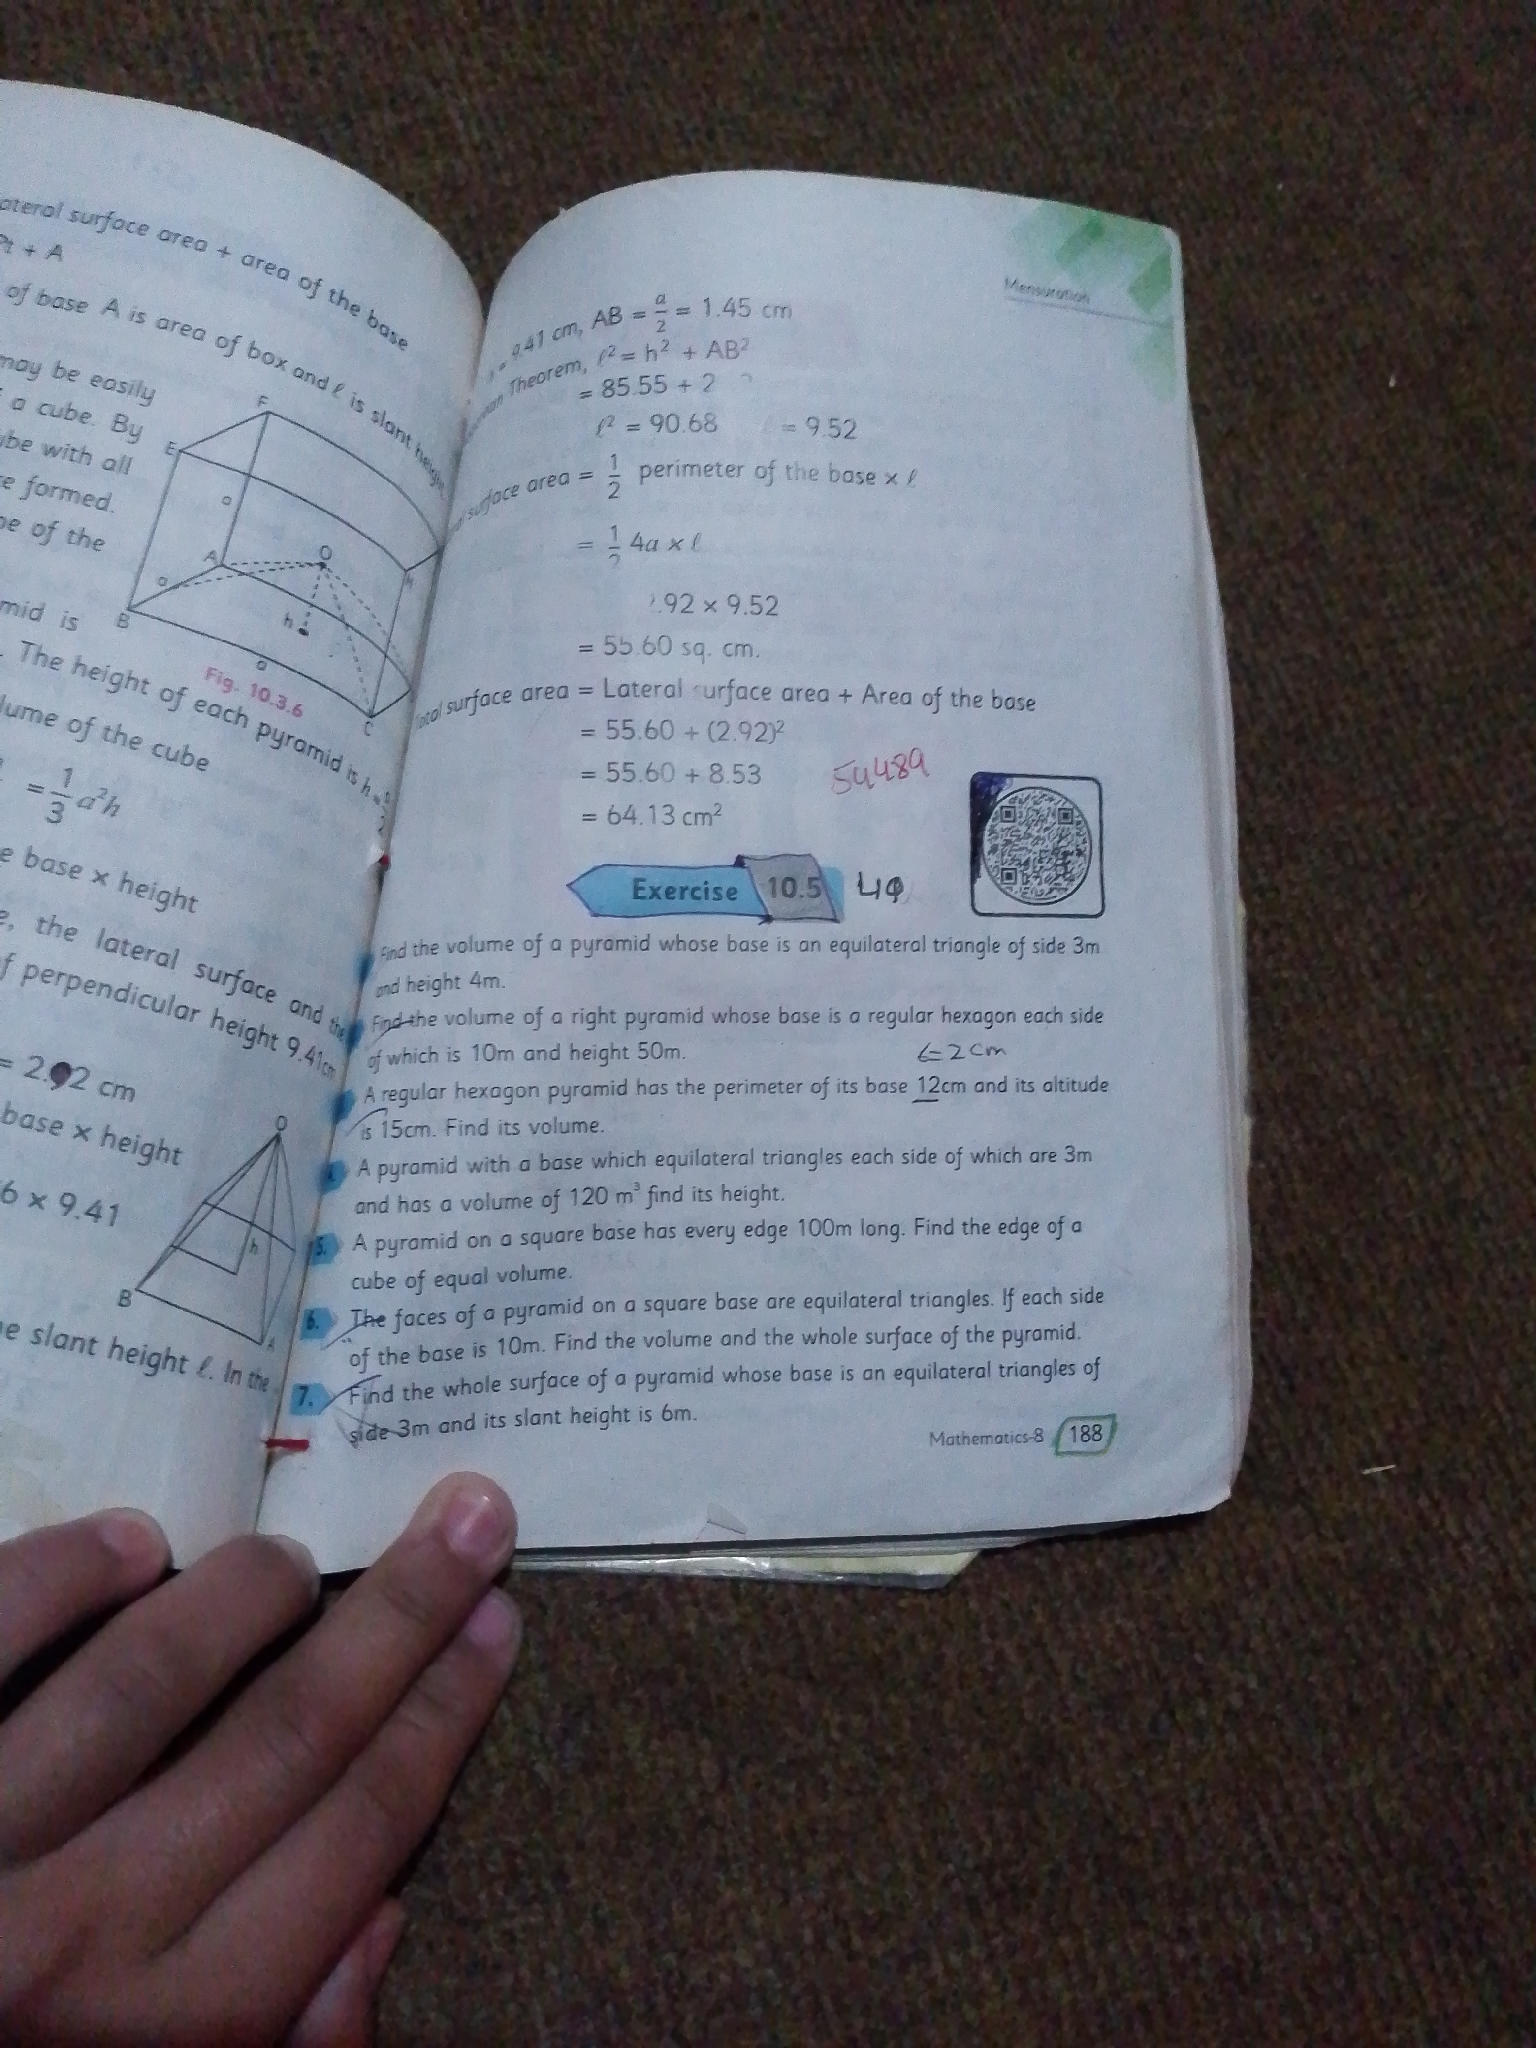 lateral surface area + area of the base
+ A
of base A is area of box and ℓ is slant height.
may be easily
a cube. By
with all
formed.
of the
F
E
a
A
O
H
a
h
B
a
C
Fig. 10.3.6
is
. The height of each pyramid is h =
volume of the cube
= 1/3 a²h
base x height
, the lateral surface and the
of perpendicular height 9.41cm
= 2.92 cm
base x height
6 x 9.41
O
h
B
A
slant height ℓ. In the
Mensuration
= 9.41 cm, AB = a/2 = 1.45 cm
Theorem, ℓ² = h² + AB²
= 85.55 + 2
ℓ² = 90.68 = 9.52
surface area = 1/2 perimeter of the base x ℓ
= 1/2 4a x ℓ
.92 x 9.52
= 55.60 sq. cm.
Total surface area = Lateral surface area + Area of the base
= 55.60 + (2.92)²
= 55.60 + 8.53
54489
= 64.13 cm²
Exercise 10.5
Find the volume of a pyramid whose base is an equilateral triangle of side 3m
and height 4m.
Find the volume of a right pyramid whose base is a regular hexagon each side
of which is 10m and height 50m.
= 2 cm
A regular hexagon pyramid has the perimeter of its base 12cm and its altitude
is 15cm. Find its volume.
A pyramid with a base which equilateral triangles each side of which are 3m
and has a volume of 120 m³ find its height.
5. A pyramid on a square base has every edge 100m long. Find the edge of a
cube of equal volume.
6. The faces of a pyramid on a square base are equilateral triangles. If each side
of the base is 10m. Find the volume and the whole surface of the pyramid.
7. Find the whole surface of a pyramid whose base is an equilateral triangles of
side 3m and its slant height is 6m.
Mathematics-8 188